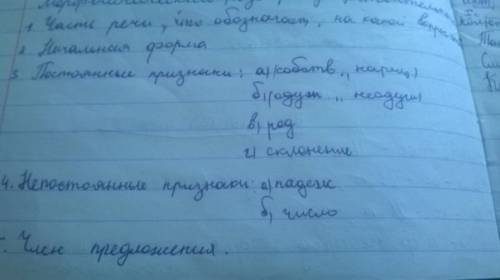 Морфологический
1. Часть речи, что обозначает, на какой вопрос
2. Начальная форма
3. Постоянные признаки: а) собств., нариц.)
б) одуш., неодуш)
в) род
г) склонение
4. Непостоянные признаки: а) падеж
б) число
Член предложения.